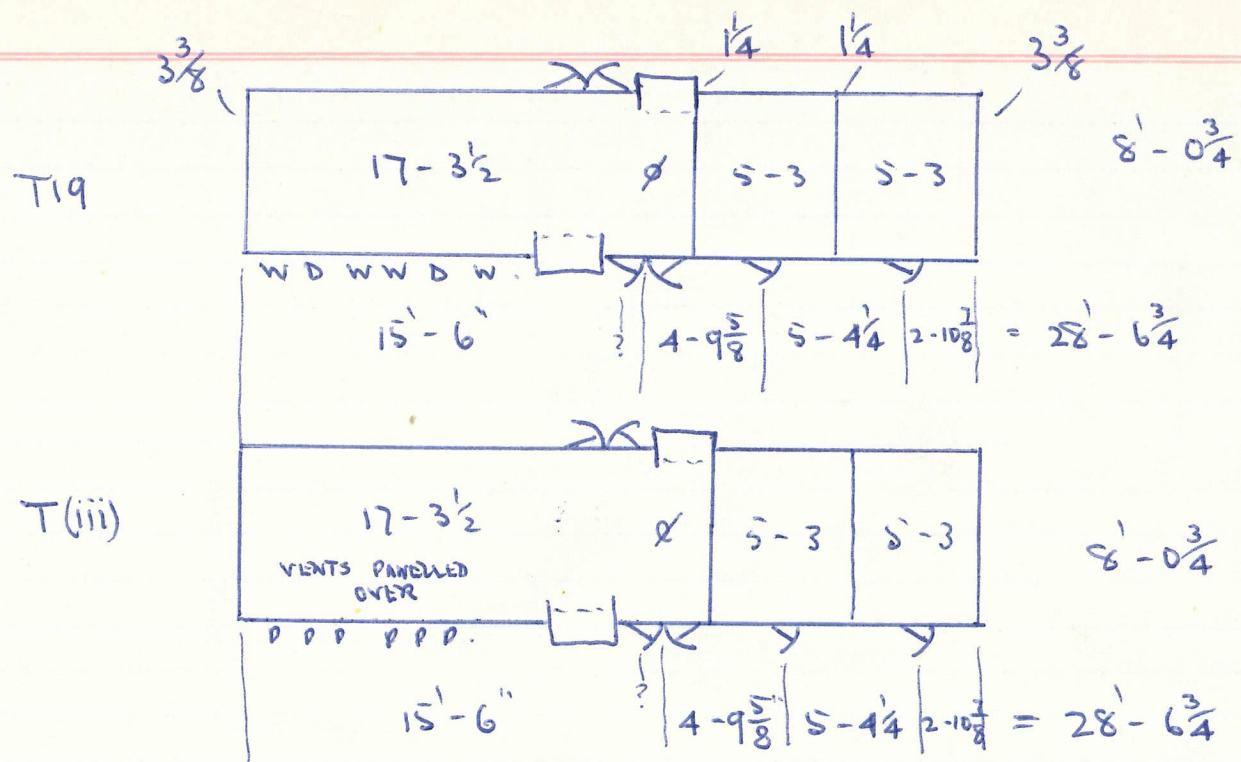 3 3/8 1 1/4 1 1/4 3 3/8
T19 17-3 1/2 ø 5-3 5-3 8'-0 3/4
W D W W D W.
15'-6" ? 4-9 5/8 5-4 1/4 2-10 7/8 = 28'-6 3/4
T(iii) 17-3 1/2 ø 5-3 5-3 8'-0 3/4
VENTS PANELLED
OVER
P P P P P P.
15'-6" ? 4-9 5/8 5-4 1/4 2-10 7/8 = 28'-6 3/4